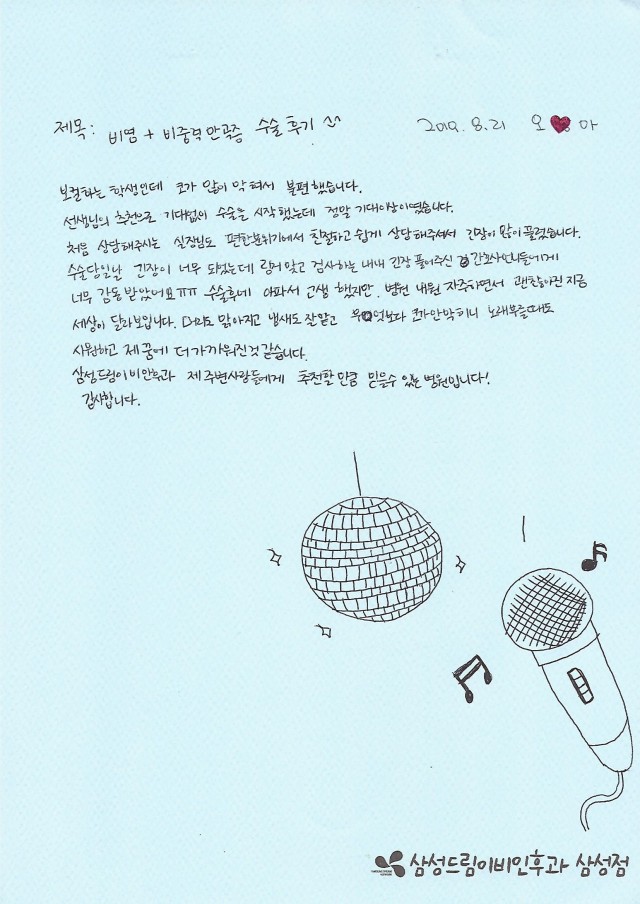 제목: 비염 + 비중격만곡증 수술 후기 ^^
2019. 8. 21 오♥아
보컬하는 학생인데 코가 많이 막혀서 불편했습니다.
선생님의 추천으로 기대없이 수술을 시작했는데 정말 기대이상이였습니다.
처음 상담해주시는 실장님도 편한분위기에서 친절하고 쉽게 상담해주셔서 긴장이 많이 풀렸습니다.
수술당일날 긴장이 너무 되었는데 링거 맞고 검사하는 내내 긴장 풀어주신 간호사언니들에게
너무 감동받았어요ㅠㅠ 수술후에 아파서 고생 했지만, 병원 내원 자주하면서 괜찮아진 지금
세상이 달라보입니다. 머리도 맑아지고 냄새도 잘맡고 무엇보다 코가안막히니 노래부를때도
시원하고 제 꿈에 더 가까워진것 같습니다.
삼성드림이비인후과 제 주변사람들에게 추천할 만큼 믿을수 있는 병원입니다!
감사합니다.
삼성드림이비인후과 삼성점